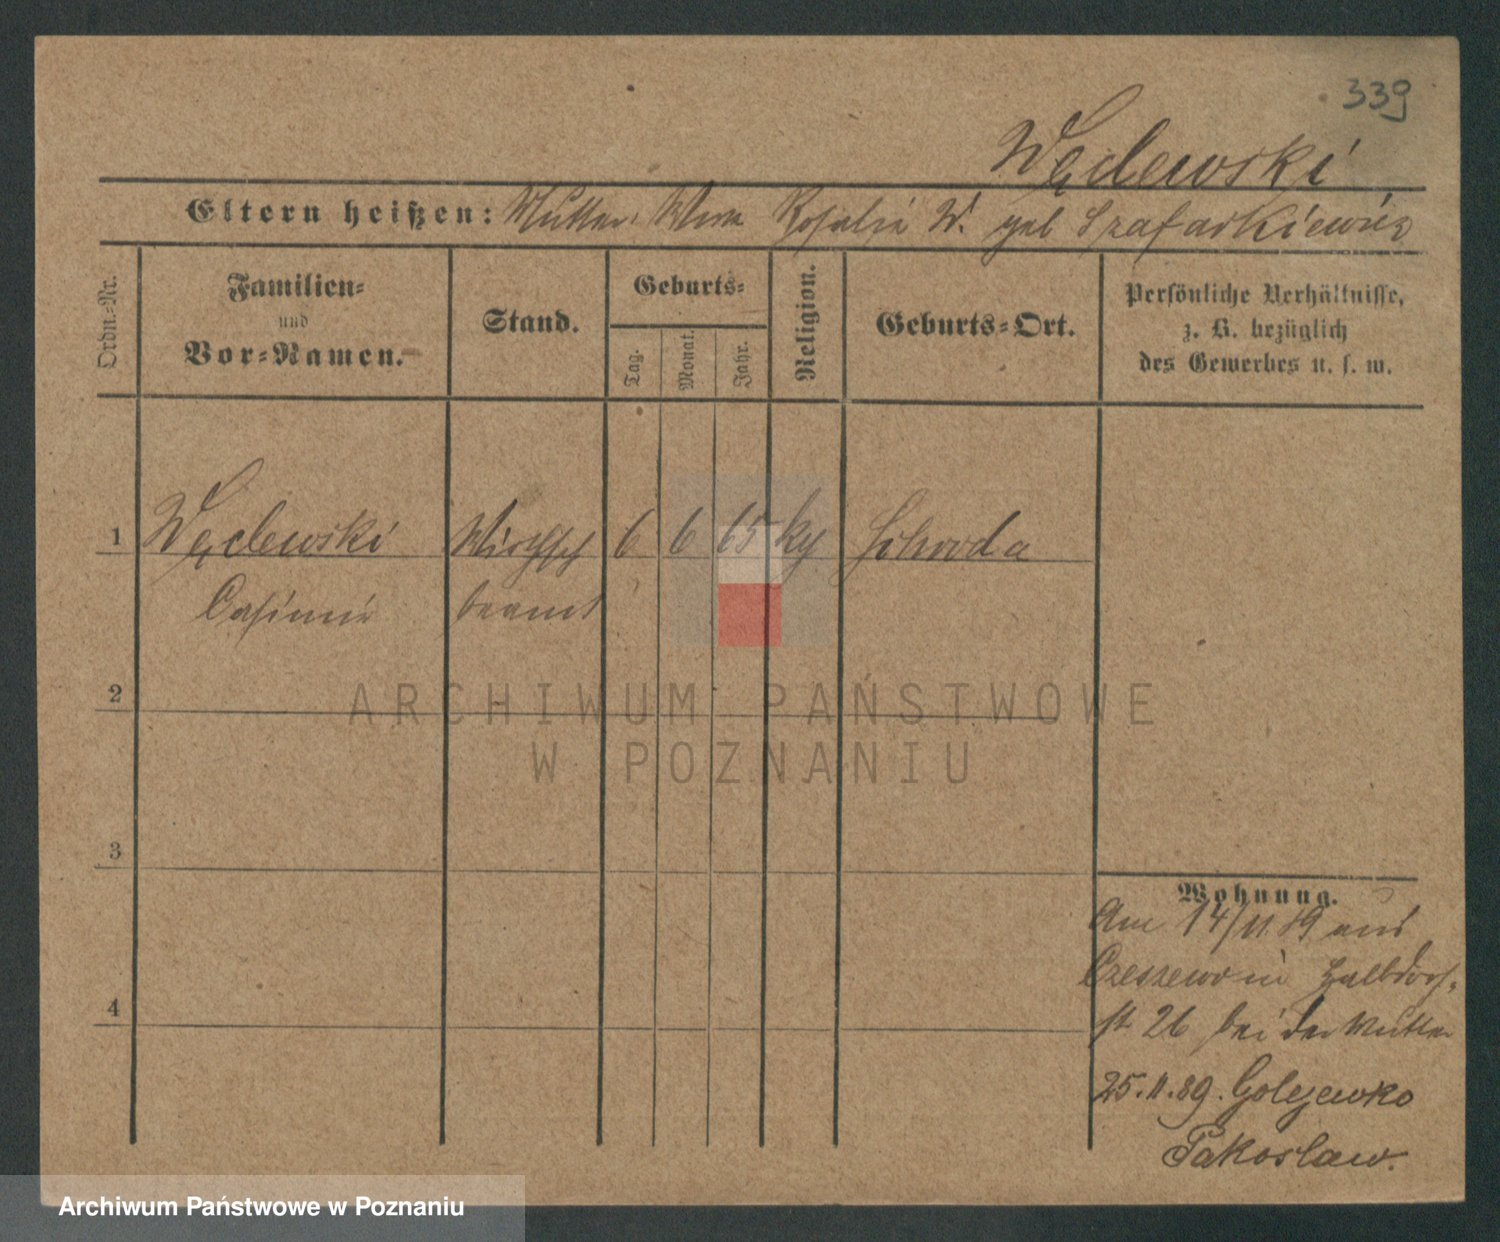 339
Wędewski
Eltern heißen: Mutter: Wwe Rosalie W. geb Szafarkiewicz
Ordn.-Nr.
Familien-
und
Vor-Namen.
Stand.
Geburts-
Tag.
Monat.
Jahr.
Religion.
Geburts-Ort.
Persönliche Verhältnisse,
z. B. bezüglich
des Gewerbes u. s. w.
1 Wędewski Wirthsch 6 6 65 kg Schroda
Casimir beamt
2
3
4
Wohnung.
Am 14/11 89 aus
Czeszewo in Halbdorf-
st. 26 bei der Mutter
25.11.89. Golejewko
Pakoslaw.
ARCHIWUM PAŃSTWOWE
W POZNANIU
Archiwum Państwowe w Poznaniu